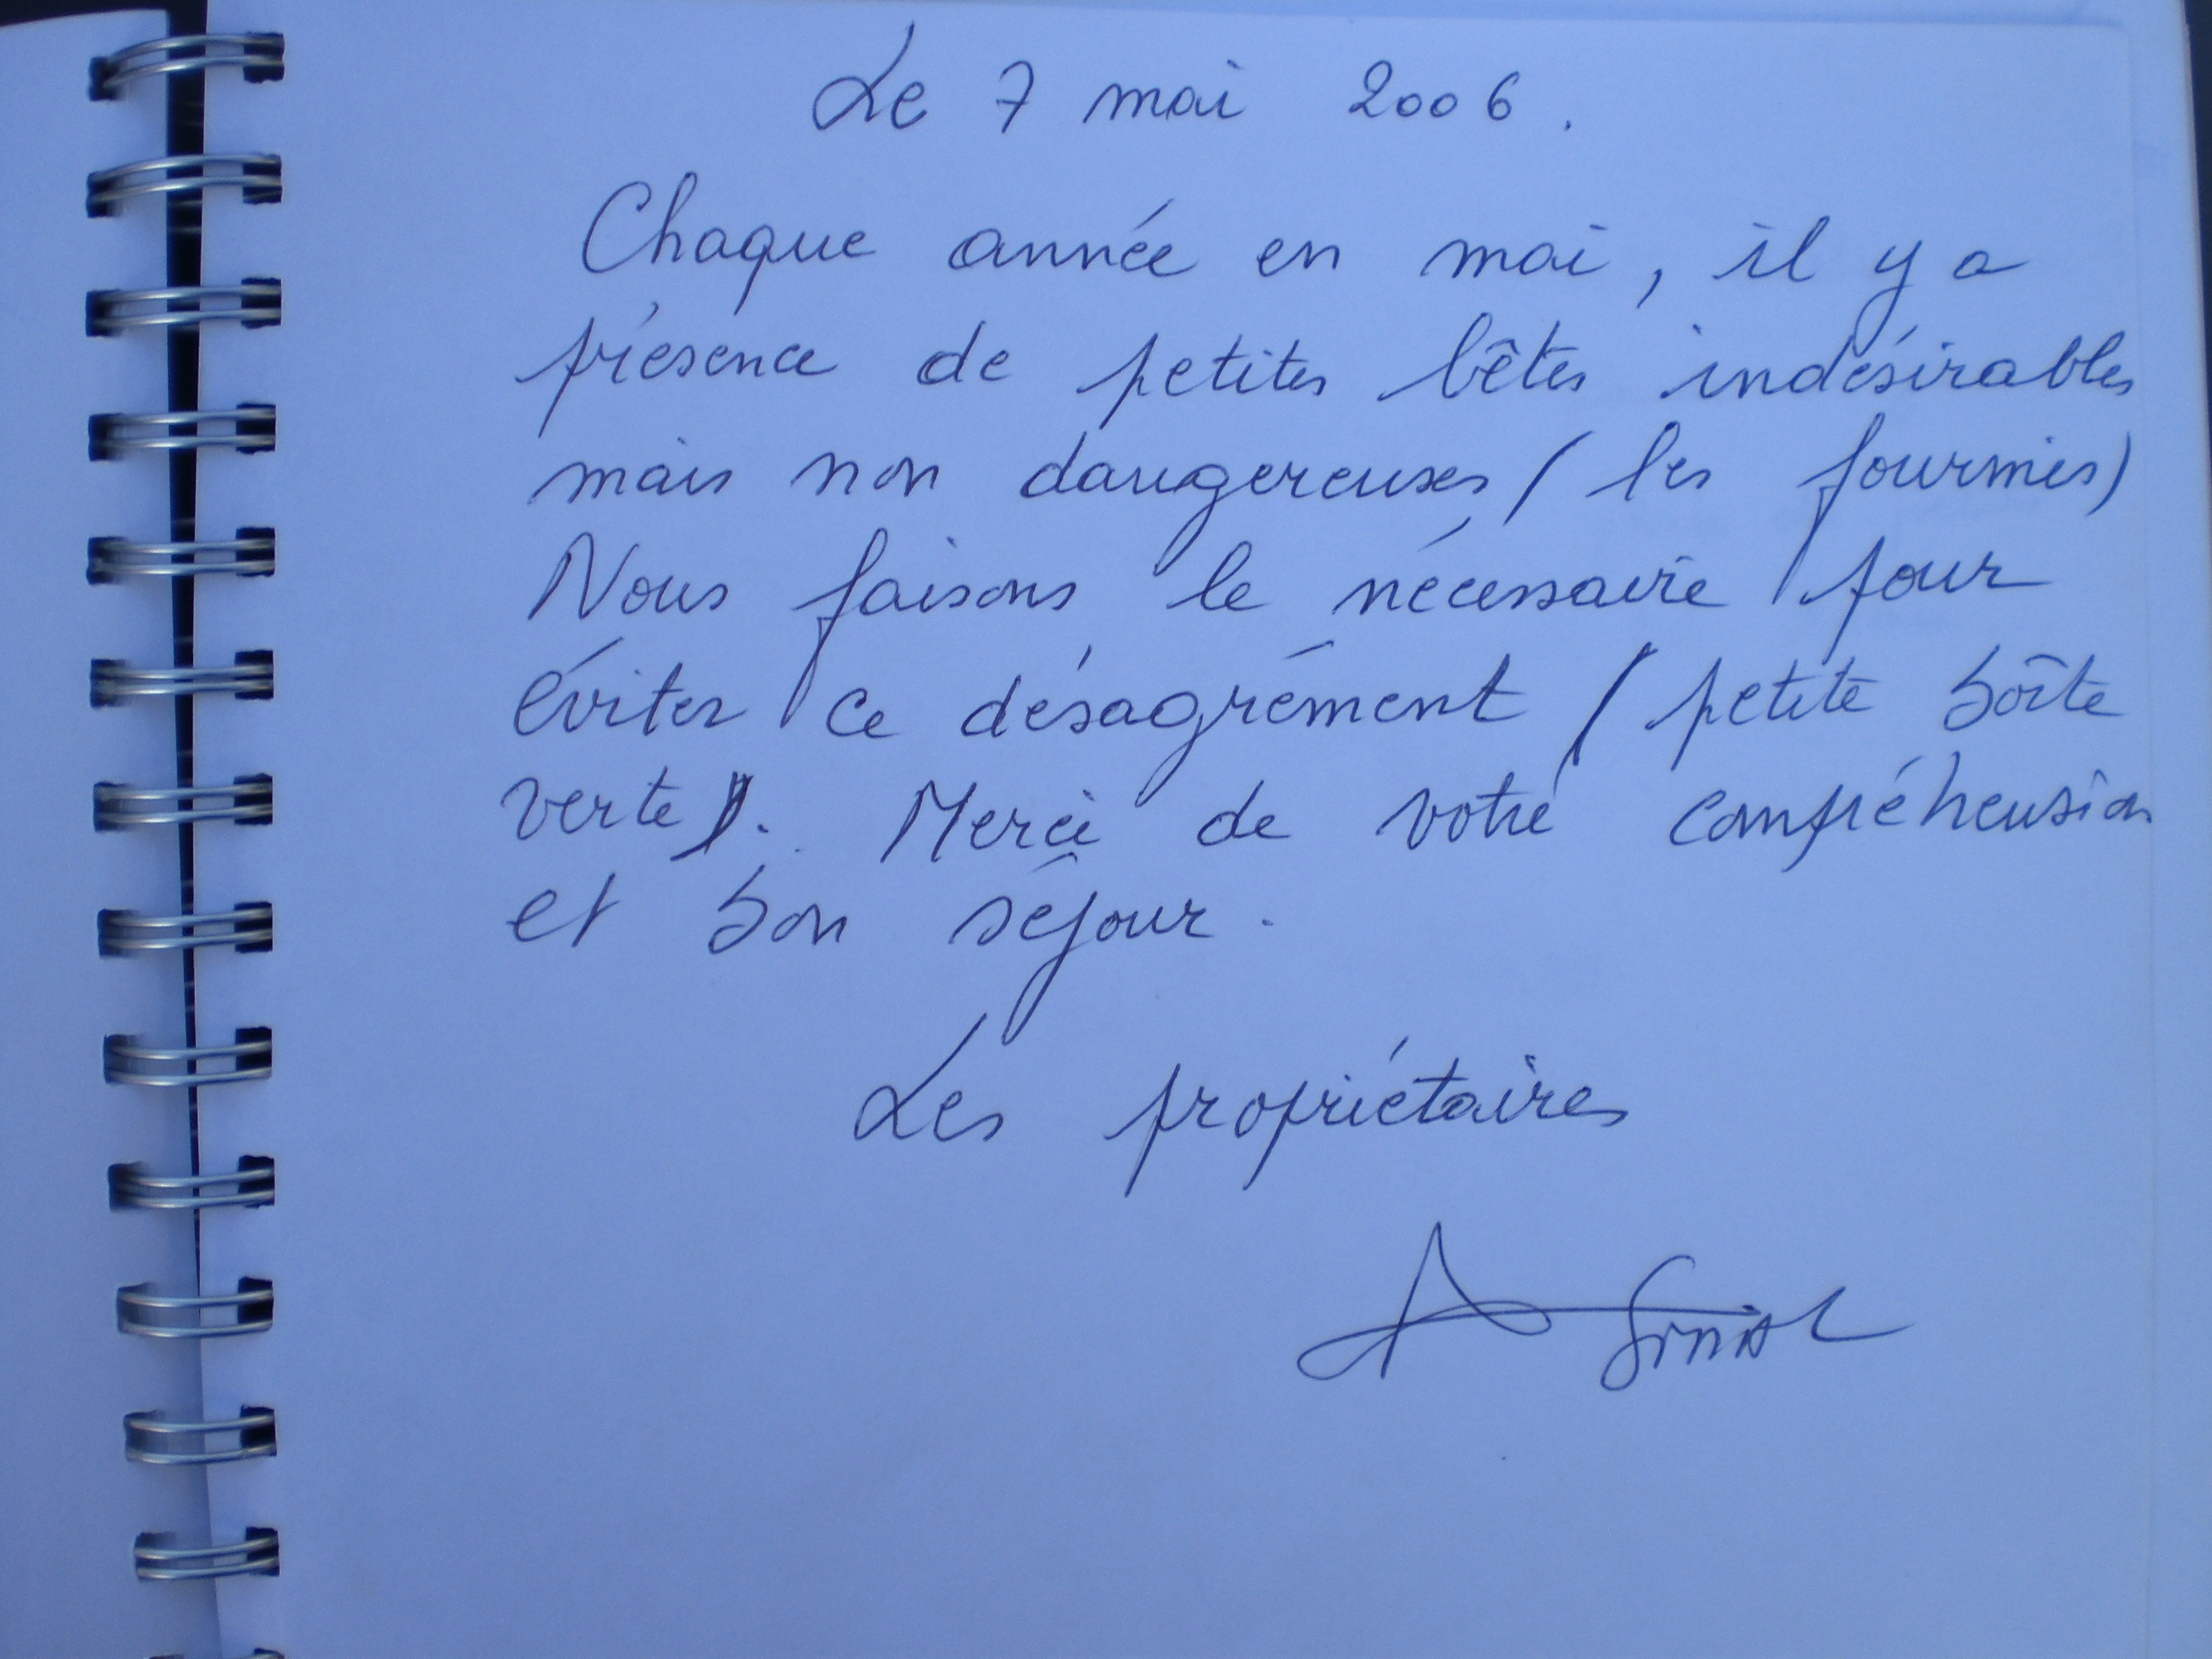 Le 7 mai 2006.
Chaque année en mai, il y a
présence de petites bêtes indésirables
mais non dangereuses (les fourmies)
Nous faisons le nécessaire pour
éviter ce désagrément (petite boîte
verte). Merci de votre compréhension
et bon séjour.
Les propriétaires